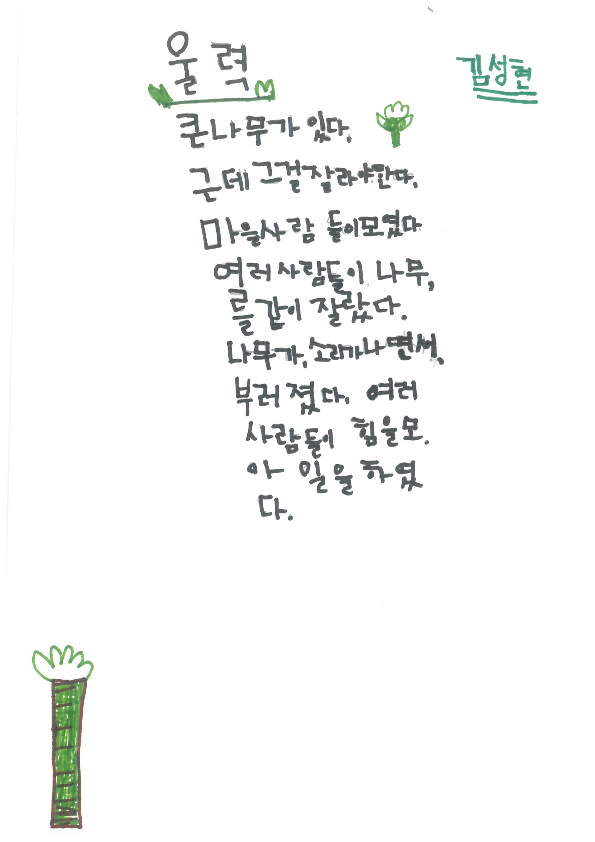 울력
김성현
큰나무가 있다.
근데 그걸 잘라야한다.
마을사람 들이모였다
여러사람들이 나무,
를같이 잘랐다.
나무가, 소리가나면서,
부러졌다. 여러
사람들이 힘을모.
아 일을하였
다.